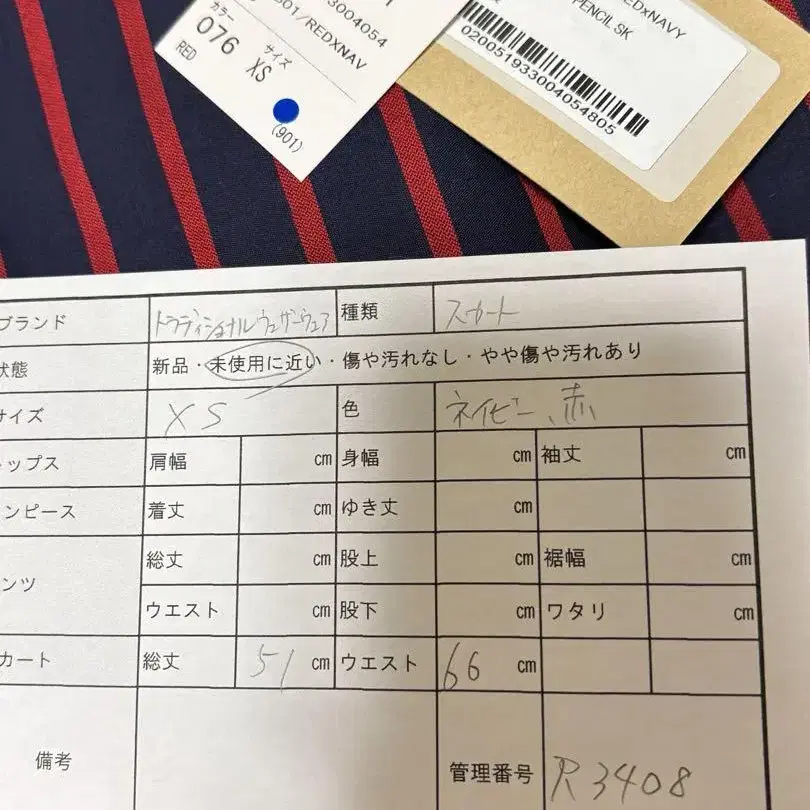 3004054
301/REDXNAV
カラー
サイズ
076
XS
RED
(901)
REDxNAVY
PENCIL SK
0200519330040548​05
ブランド
トラディショナルウェザーウェア
種類
スカート
状態
新品・未使用に近い・傷や汚れなし・やや傷や汚れあり
サイズ
XS
色
ネイビー、赤
ップス
肩幅
cm
身幅
cm
袖丈
cm
ンピース
着丈
cm
ゆき丈
cm
ンツ
総丈
cm
股上
cm
裾幅
cm
ウエスト
cm
股下
cm
ワタリ
cm
カート
総丈
51
cm
ウエスト
66
cm
備考
管理番号
R3408